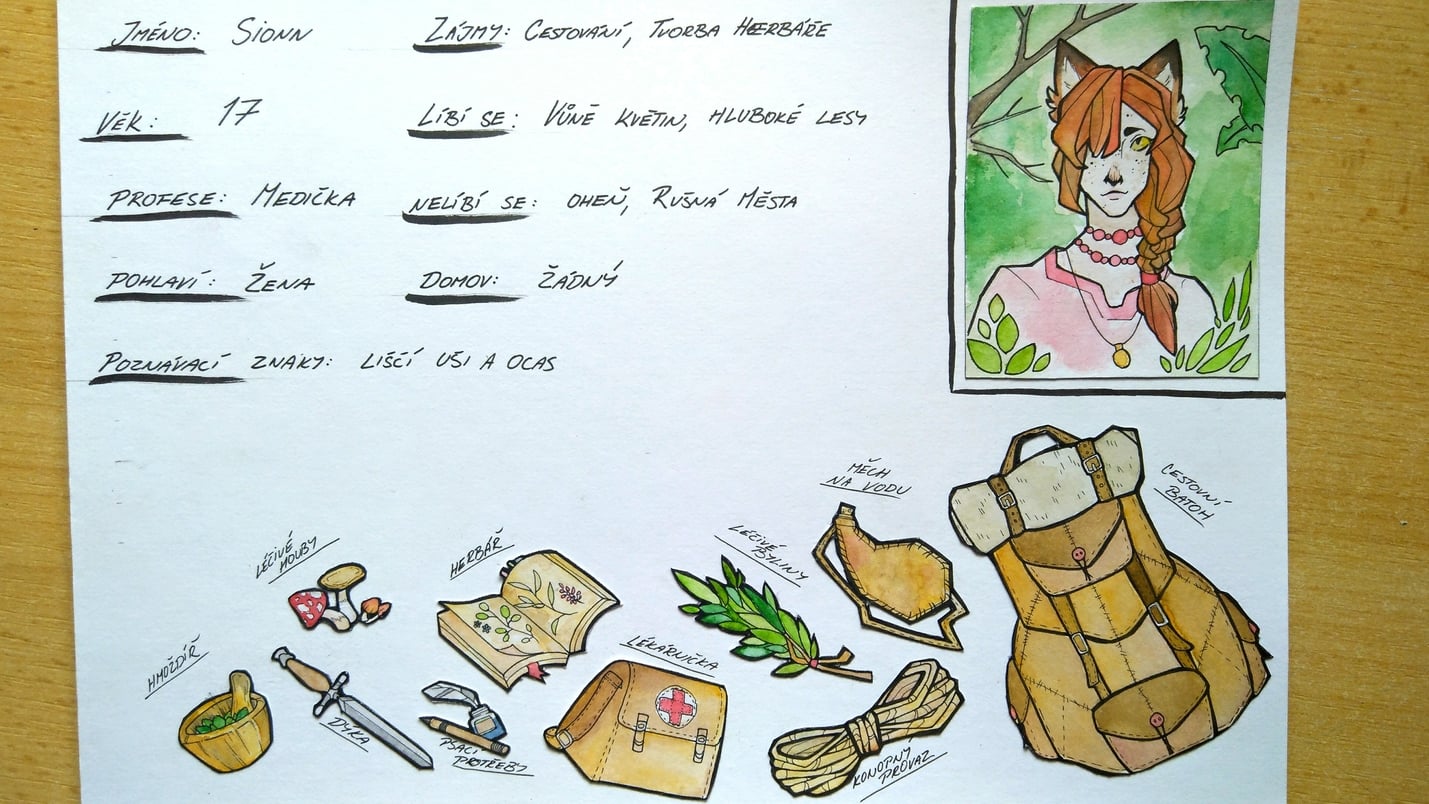 Jméno: Sionn
Zájmy: Cestování, Tvorba Heerbáře
Věk: 17
Líbí se: Vůně květin, hluboké lesy
Profese: Medička
Nelíbí se: oheň, Rušná Města
Pohlaví: Žena
Domov: Žádný
Poznávací znaky: liščí uši a ocas
Měch
na vodu
Cestovní
batoh
Léčivé
houby
Herbář
Léčivé
byliny
Hmoždíř
Lékárnička
Dýka
Psací
potřeby
Konopný
provaz